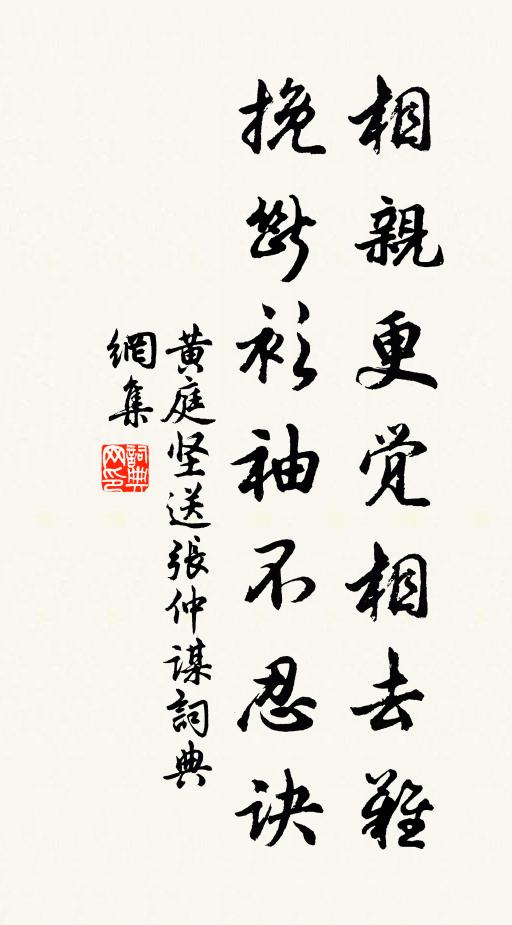 相親更觉相去難
挽斷衫袖不忍诀
黄庭坚送張仲謀詞典
網集
詞典
网印